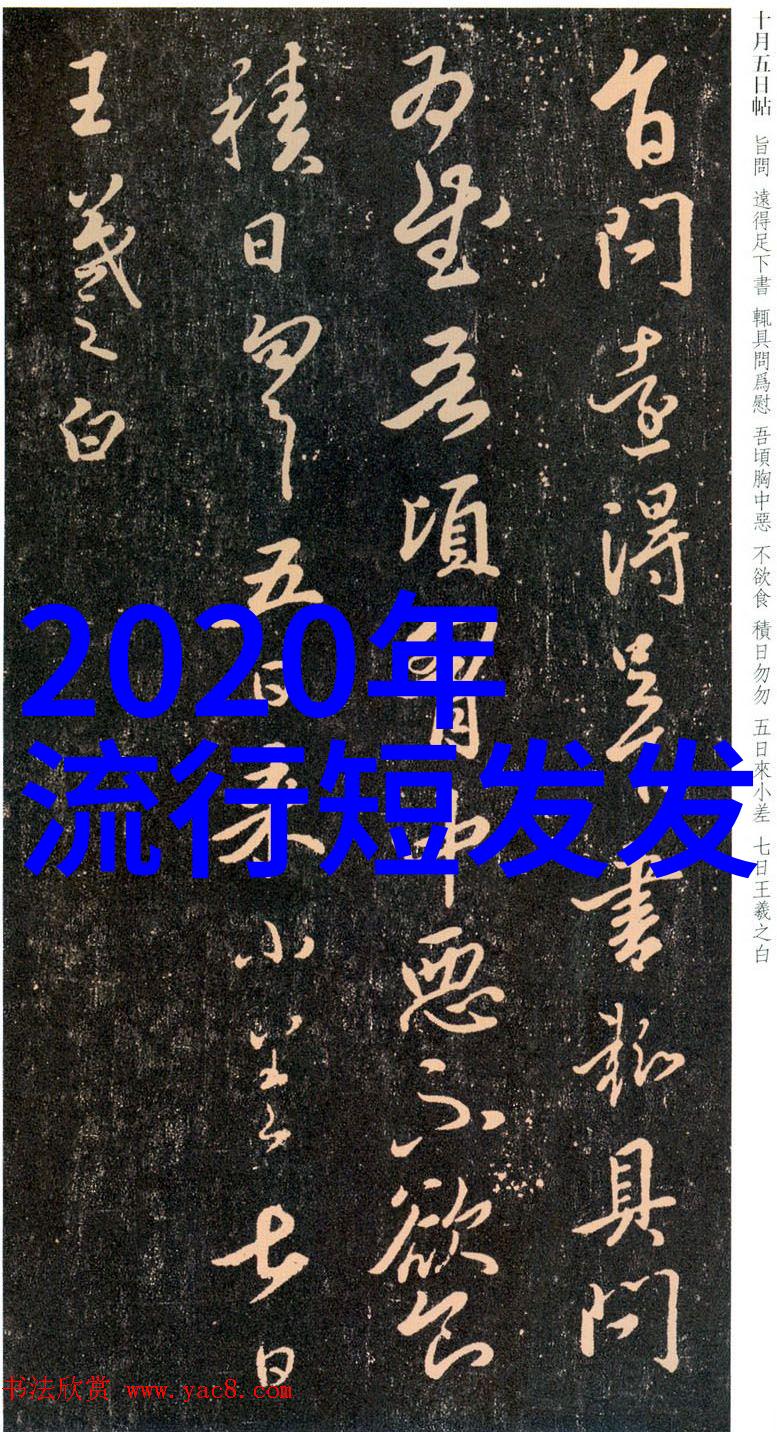 十月五日帖 旨問 遠得足下書 輒具問爲慰 吾頃胸中惡 不欲食 積日勿勿 五日來小差 七日王羲之白
旨問遠得足下書輒具問
為慰吾頃胸中惡不欲食
積日勿勿五日來小差七日
王羲之白
2020年
流行短发发
书法欣赏 www.yac8.com